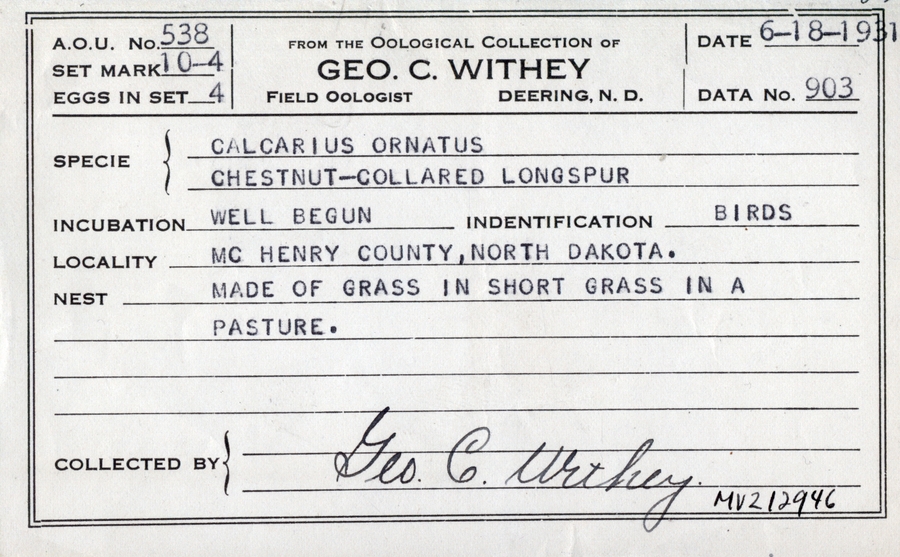 A.O.U. No. 538
SET MARK 10-4
EGGS IN SET 4
FROM THE OOLOGICAL COLLECTION OF
GEO. C. WITHEY
FIELD OOLOGIST DEERING, N. D.
DATE 6-18-1931
DATA No. 903
SPECIE CALCARIUS ORNATUS
CHESTNUT-COLLARED LONGSPUR
INCUBATION WELL BEGUN INDENTIFICATION BIRDS
LOCALITY MC HENRY COUNTY,NORTH DAKOTA.
NEST MADE OF GRASS IN SHORT GRASS IN A
PASTURE.
COLLECTED BY Geo. C. Withey.
MVZ12946